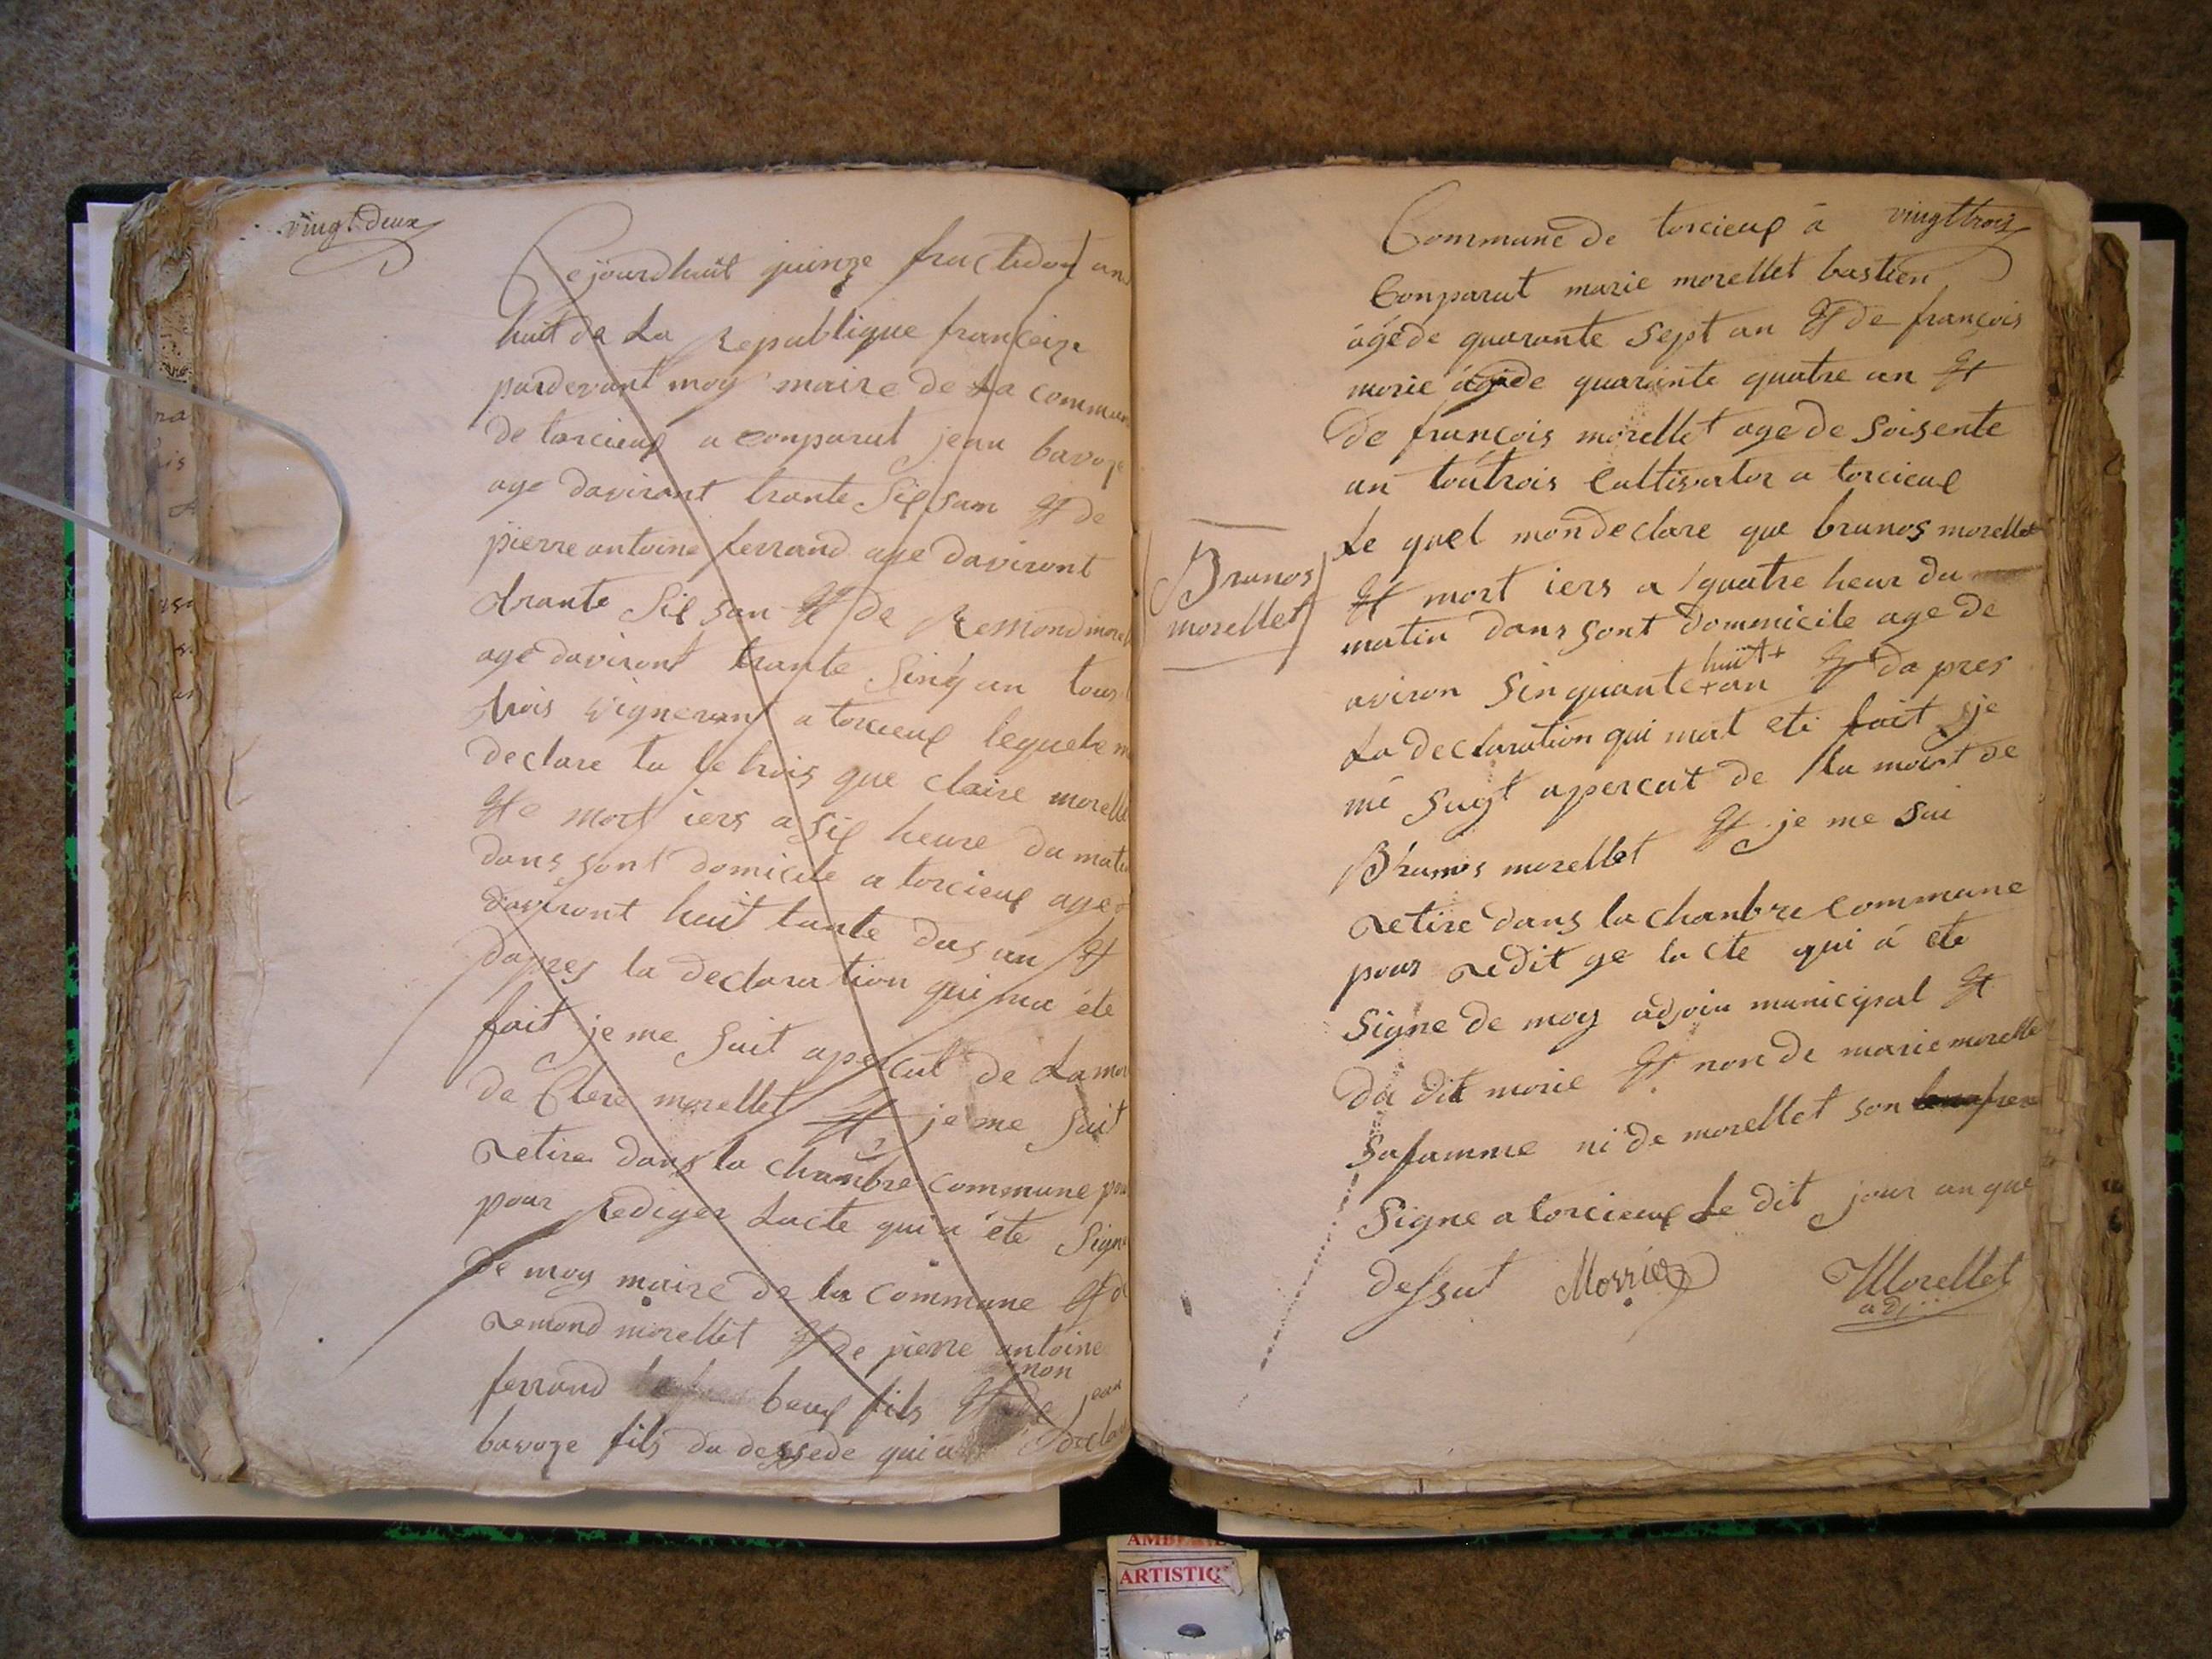 vingt deux
Cejourdhuit quinze fructidor an
huit de La Republique franceize
pardevant moy maire de La commun
de torcieux a conparut jean bavoze
age daviront trante six san Et de
pierre antoine ferrand age daviront
trante six san Et de Remond morel
age daviront trante sinq an tous
trois vigneront a torcieux lequele m
declare tu le trois que claire morelle
Et e mort iers a six heure du matin
dans sont domicile a torcieux age
daviront huit tante dus an Et
dapres la declaration qui ma éte
fait je me suit apercut de La mor
de Clere morellet Et je me suit
Retire dans la chambre commune pour
pour Rediger Lacte qui a éte Signe
de moy maire de la commune Et d
Remond morellet Et de pierre antoine
non
ferrand beux fils Et de jean
bavoze fils du dessede qui a declar
vingttrois
Commune de torcieux á
Conparut marie morellet bastien
ágé de quarante sept an Et de françois
morie ágé de quarante quatre an Et
de françois morellet age de soisente
an toutrois Cultivator a torcieux
Le quel mon declare que brunos morellet
Et mort iers a quatre heur du
Brunos
morellet
matin dans sont dommicile age de
aviron sinquante + an Et da pres
huit +
La declaration qui mat eté fait je
mé suyt apercut de la mort de
Brunos morellet Et je me sui
Retire dans la chanbre commune
pour Redit ge lacte qui á été
signe de moy adjoin municipal Et
du dit morie Et non de marie morelle
safamme ni de morellet son frere
Signe a torcieux Le dit jour an que
dessut Morrier Morellet
adj
AMBERIE
ARTISTIQ